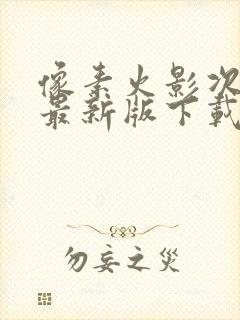 像素火影次
最新版下载
勿妄之灾